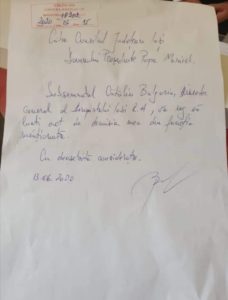 2020 06 15
Către Consiliul Județean Iași
Domnului Președinte Popa Maricel,
Subsemnatul Cătălin Bulgariu, director
general al Aeroportului Iași R.A., vă rog să
luați act de demisia mea din funcția
menționată.
Cu deosebită considerație.
15.06.2020